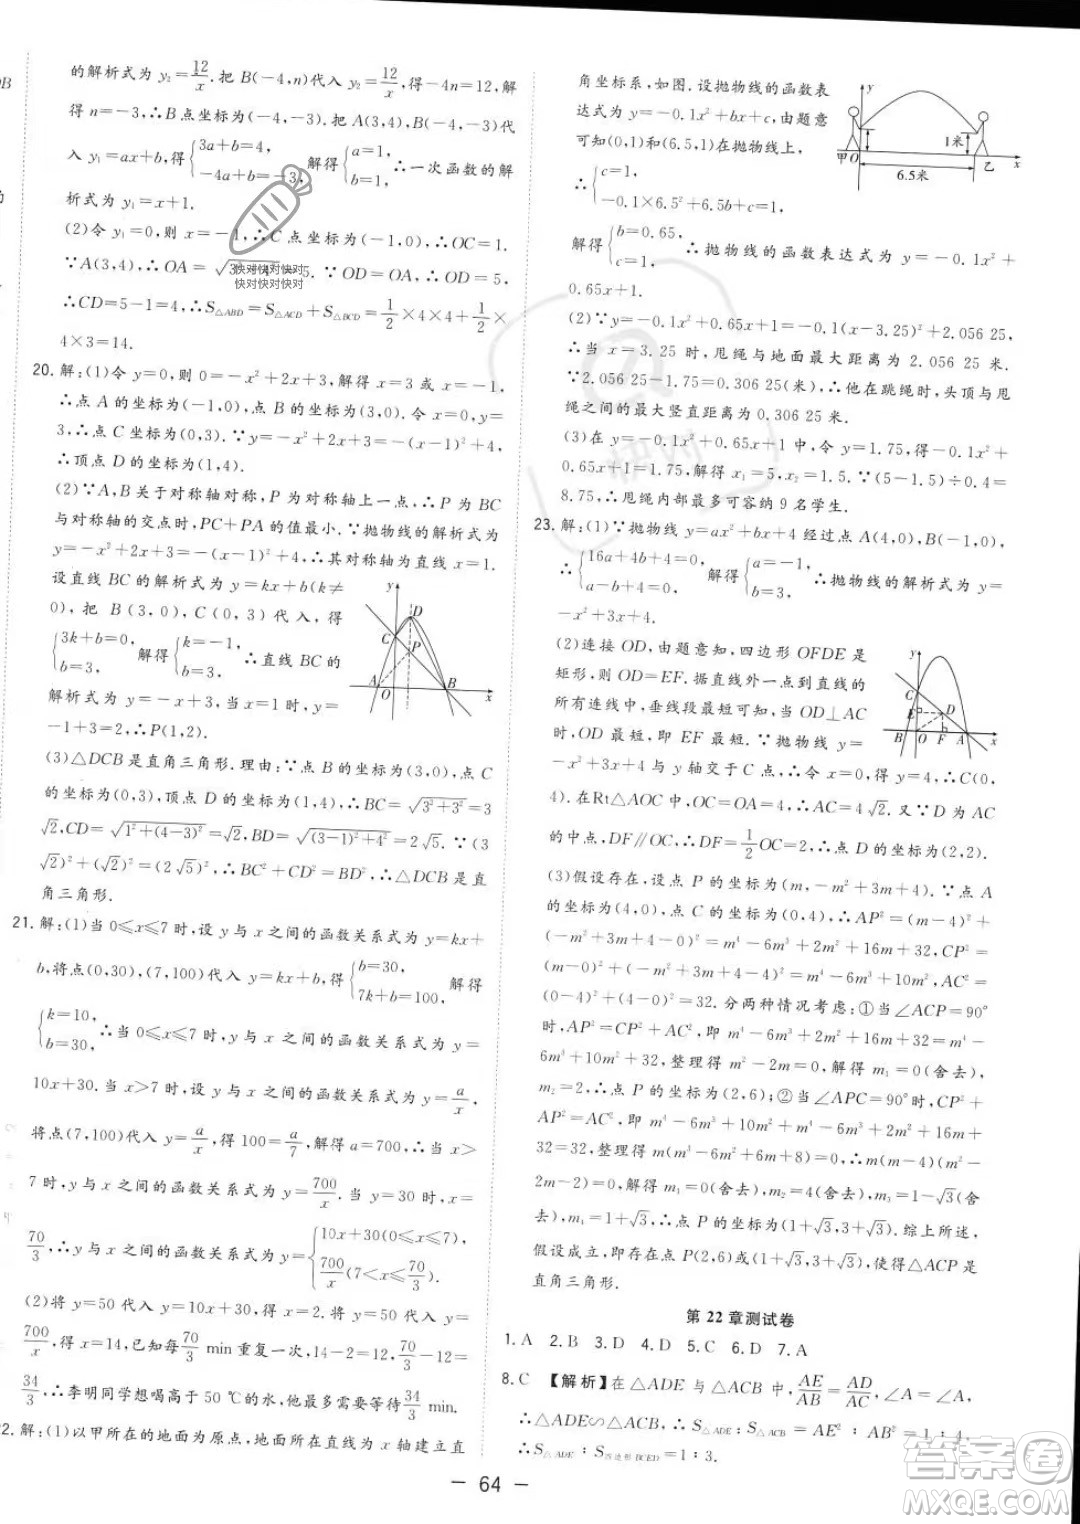 的解析式为 y₂=12/x. 把 B(-4,n)代入 y₂=12/x, 得-4n=12, 解
得 n=-3, ∴B点坐标为(-4,-3). 把 A(3,4), B(-4,-3)代
入 y₁=ax+b, 得{3a+b=4, -4a+b=-3, 解得{a=1, b=1. ∴一次函数的解
析式为 y₁=x+1.
(2)令 y₁=0, 则 x=-1, ∴C 点坐标为(-1,0), ∴OC=1.
∵A(3,4), ∴OA=5. ∵OD=OA, ∴OD=5,
∴CD=5-1=4, ∴S△ABD=S△ACD+S△BCD=1/2×4×4+1/2×
4×3=14.
20. 解:(1)令 y=0, 则 0=-x²+2x+3, 解得 x=3 或 x=-1.
∴点 A 的坐标为(-1,0), 点 B 的坐标为(3,0). 令 x=0, y=
3, ∴点 C 的坐标为(0,3). ∵y=-x²+2x+3=-(x-1)²+4,
∴顶点 D 的坐标为(1,4).
(2)∵A,B 关于对称轴对称, P 为对称轴上一点, ∴P 为 BC
与对称轴的交点时, PC+PA 的值最小. ∵抛物线的解析式为
y=-x²+2x+3=-(x-1)²+4, ∴其对称轴为直线 x=1.
设直线 BC 的解析式为 y=kx+b(k≠
0), 把 B(3,0), C(0,3)代入, 得
{3k+b=0, b=3, 解得{k=-1, b=3. ∴直线 BC 的
解析式为 y=-x+3. 当 x=1 时, y=
-1+3=2, ∴P(1,2).
(3)△DCB 是直角三角形. 理由:∵点 B 的坐标为(3,0), 点 C
的坐标为(0,3), 顶点 D 的坐标为(1,4), ∴BC=√(3²+3²)=3
√2, CD=√(1²+(4-3)²)=√2, BD=√((3-1)²+4²)=2√5. ∵(3
√2)²+(√2)²=(2√5)², ∴BC²+CD²=BD², ∴△DCB 是直
角三角形.
21. 解:(1)当 0≤x≤7 时, 设 y 与 x 之间的函数关系式为 y=kx+
b, 将点(0,30),(7,100)代入 y=kx+b, 得{b=30, 7k+b=100, 解得
{k=10, b=30. ∴当 0≤x≤7 时, y 与 x 之间的函数关系式为 y=
10x+30. 当 x>7 时, 设 y 与 x 之间的函数关系式为 y=a/x,
将点(7,100)代入 y=a/x, 得 100=a/7, 解得 a=700, ∴当 x>
7 时, y 与 x 之间的函数关系式为 y=700/x. 当 y=30 时, x=
70/3, ∴y 与 x 之间的函数关系式为 y={10x+30(0≤x≤7), 700/x(7<x≤70/3).
(2)将 y=50 代入 y=10x+30, 得 x=2, 将 y=50 代入 y=
700/x, 得 x=14, 已知每70/3 min 重复一次, 14-2=12, 70/3-12=
34/3, ∴李明同学想喝高于 50 ℃的水, 他最多需要等待34/3 min.
22. 解:(1)以甲所在的地面为原点, 地面所在直线为 x 轴建立直
角坐标系, 如图. 设抛物线的函数表
达式为 y=-0.1x²+bx+c, 由题意
可知(0,1)和(6.5,1)在抛物线上,
∴{c=1, -0.1×6.5²+6.5b+c=1,
解得{b=0.65, c=1. ∴抛物线的函数表达式为 y=-0.1x²+
0.65x+1.
(2)∵y=-0.1x²+0.65x+1=-0.1(x-3.25)²+2.056 25,
∴当 x=3.25 时, 甩绳与地面最大距离为 2.056 25 米.
∵2.056 25-1.75=0.306 25(米), ∴他在跳绳时, 头顶与甩
绳之间的最大竖直距离为 0.306 25 米.
(3)在 y=-0.1x²+0.65x+1 中, 令 y=1.75, 得-0.1x²+
0.65x+1=1.75, 解得 x₁=5, x₂=1.5. ∵(5-1.5)÷0.4=
8.75, ∴甩绳内部最多可容纳 9 名学生.
甲 O y 1米 6.5米 乙 x
23. 解:(1)∵抛物线 y=ax²+bx+4 经过点 A(4,0), B(-1,0),
∴{16a+4b+4=0, a-b+4=0, 解得{a=-1, b=3. ∴抛物线的解析式为 y=
-x²+3x+4.
(2)连接 OD, 由题意知, 四边形 OFDE 是
矩形, 则 OD=EF. 据直线外一点到直线的
所有连线中, 垂线段最短可知, 当 OD⊥AC
时, OD 最短, 即 EF 最短. ∵抛物线 y=
-x²+3x+4 与 y 轴交于 C 点, ∴令 x=0, 解得 y=4, ∴C(0,
4). 在Rt△AOC 中, OC=OA=4, ∴AC=4√2. 又∵D 为 AC
的中点, DF∥OC, ∴DF=1/2OC=2, ∴点 D 的坐标为(2,2).
(3)假设存在, 设点 P 的坐标为(m,-m²+3m+4). ∵点 A
的坐标为(4,0), 点 C 的坐标为(0,4), ∴AP²=(m-4)²+
(-m²+3m+4-0)²=m⁴-6m³+2m²+16m+32, CP²=
(m-0)²+(-m²+3m+4-4)²=m⁴-6m³+10m², AC²=
(0-4)²+(4-0)²=32. 分两种情况考虑:①当∠ACP=90°
时, AP²=CP²+AC², 即 m⁴-6m³+2m²+16m+32=m⁴-
6m³+10m²+32, 整理得 m²-2m=0, 解得 m₁=0(舍去),
m₂=2, ∴点 P 的坐标为(2,6);②当∠APC=90°时, CP²+
AP²=AC², 即 m⁴-6m³+10m²+m⁴-6m³+2m²+16m+
32=32, 整理得 m(m³-6m²+6m+8)=0, ∴m(m-4)(m²-
2m-2)=0, 解得 m₁=0(舍去), m₂=4(舍去), m₃=1-√3(舍
去), m₄=1+√3, ∴点 P 的坐标为(1+√3,3+√3). 综上所述,
假设成立, 即存在点 P(2,6)或(1+√3,3+√3), 使得△ACP 是
直角三角形.
第 22 章测试卷
1. A 2. B 3. D 4. D 5. C 6. D 7. A
8. C 【解析】在△ADE 与△ACB 中, AE/AB=AD/AC, ∠A=∠A,
∴△ADE∽△ACB, ∴S△ADE:S△ACB=AE²:AB²=1:4,
∴S△ADE:S四边形BCED=1:3.
— 64 —
答案圈
MXQE.COM